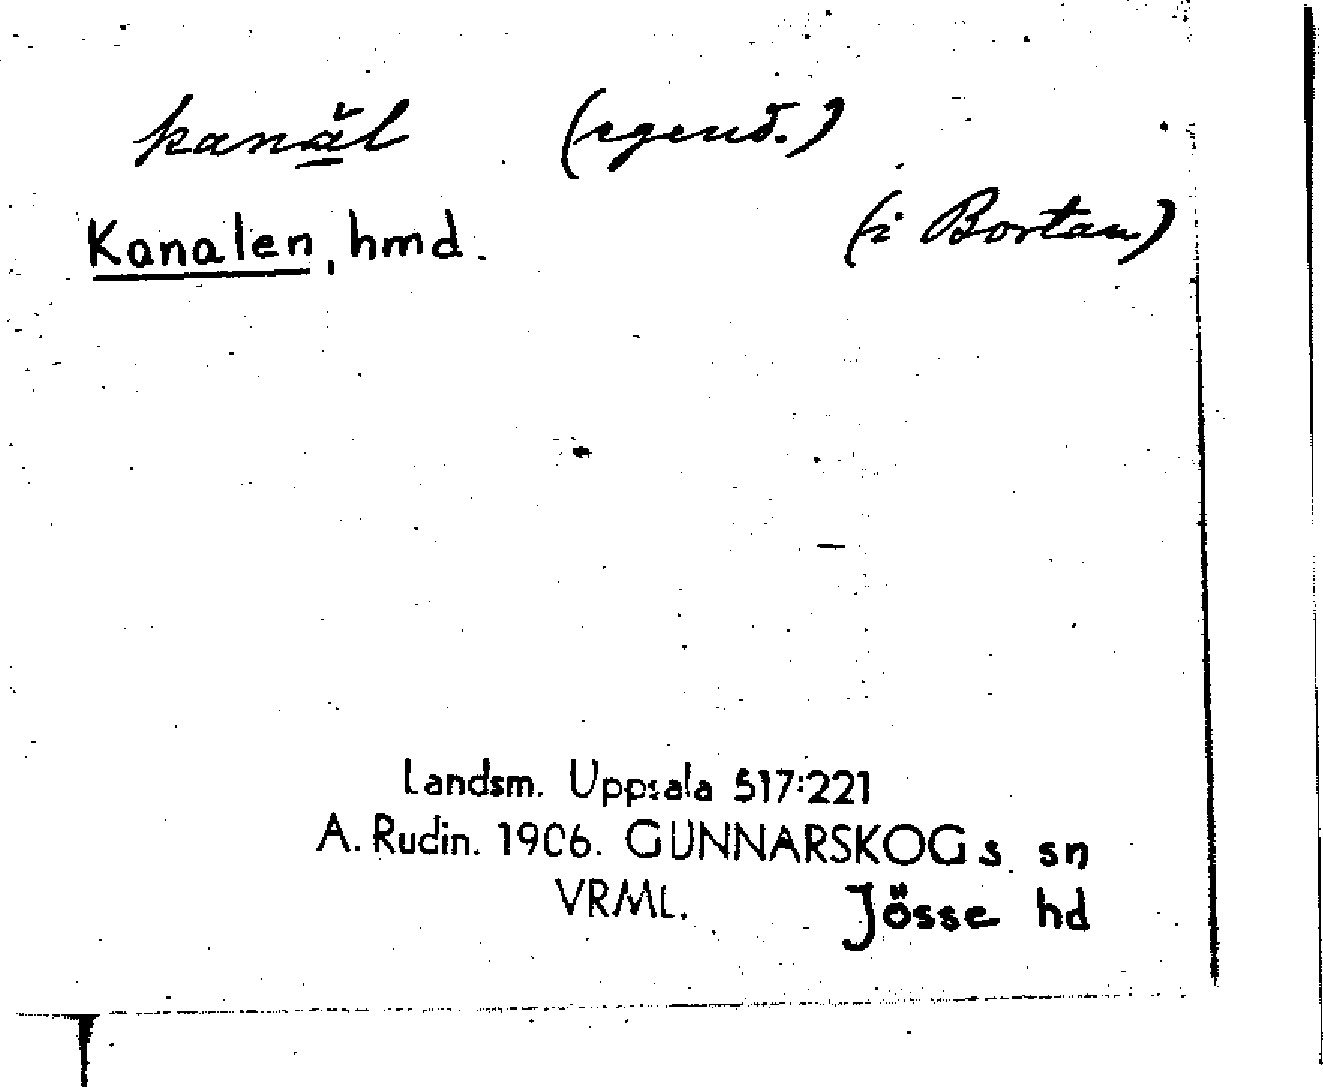 kanăl (egend.)
Kanalen, hmd. (i Bortan)
Landsm. Uppsala 517:221
A. Rudin. 1906. GUNNARSKOGs sn
VRML. Jösse hd